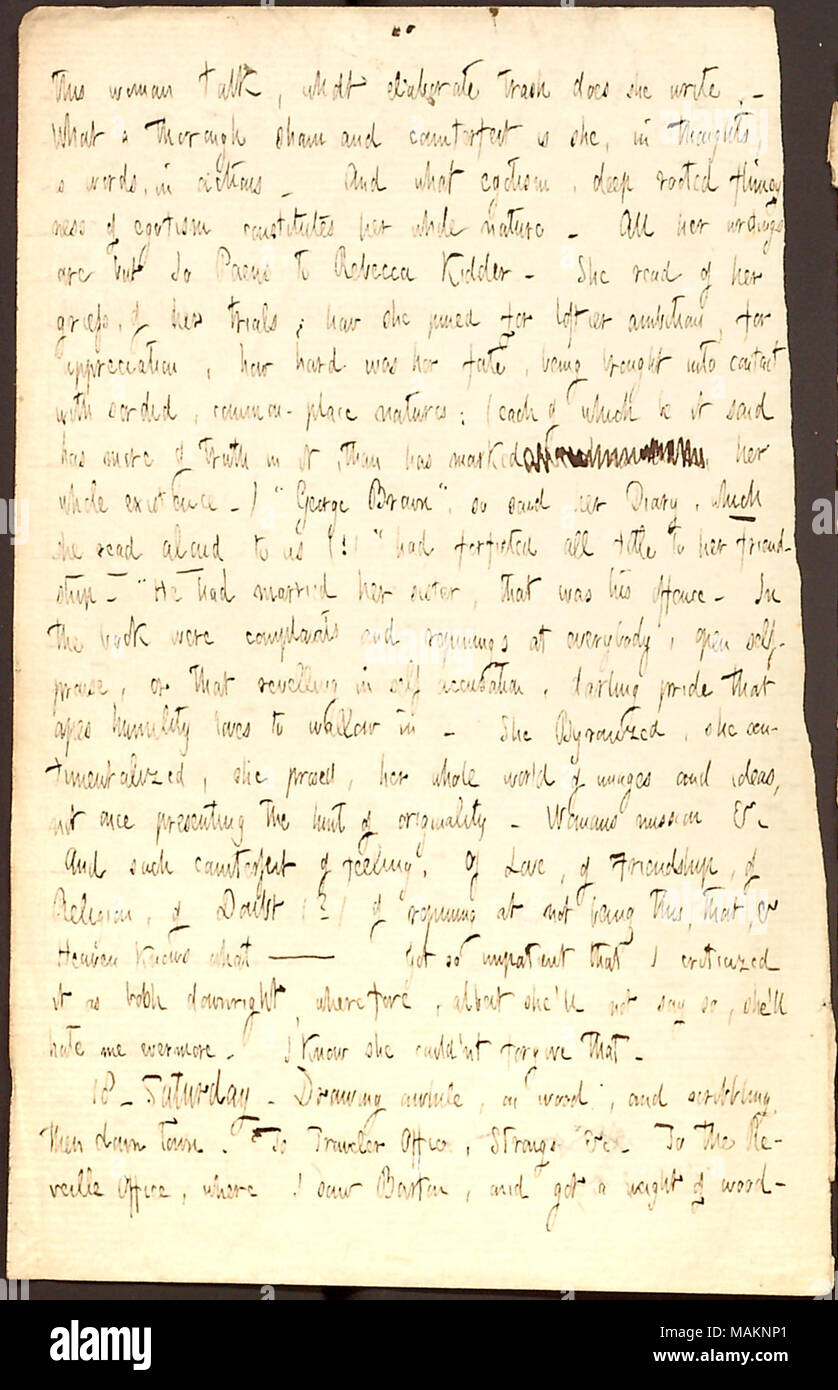 this woman talk, what elaborate trash does she write. –
What a thorough sham and counterfeit is she, in thoughts,
in words, in actions – And what egotism, deep rooted
ness of egotism constitutes her whole nature – All her writings
are but Io Paens to Rebecca Kidder – She read of her
griefs, of her trials; how she pined for loftier ambition, for
appreciation, how hard was her fate, being brought into contact
with sordid, common-place natures; (each of which be it said
has more of truth in it, than has marked her
whole existence –) "George Brown", so said her Diary, which
she read aloud to us (!) "had forfeited all title to her friend-
ship – " He had married her sister, that was his offence – In
the book were complaints and repinings at everybody, open self-
praise, or that revelling in self accusation, darling pride that
apes humility loves to wallow in – She Byronized, she sen-
timentalized, she prosed, her whole world of images and ideas,
not once presenting the hint of originality – Womans mission &c
And such counterfeit of feeling, Of Love, of Friendship, of
Religion, of Doubt (?) of repining at not being this, that, &
Heaven knows what —— Got so impatient that I criticized
it as bosh downright, wherefore, albeit she'll not say so, she'll
hate me evermore – I know she could'nt forgive that –
18 – Saturday – Drawing awhile, on wood, and scribbling,
then down town. To Traveler Office, Strongs &c – To the Re-
veille Office, where I saw Barton, and got a weight of wood-
alamy
Image ID: MAKNP1
www.alamy.com